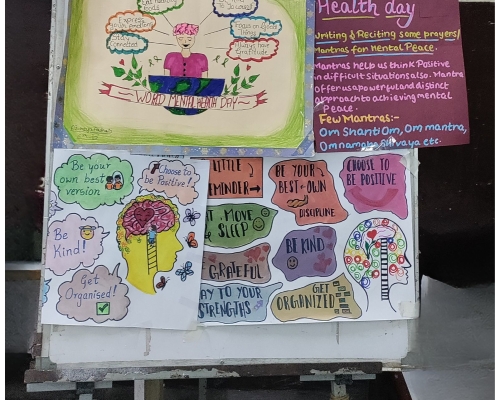 foods
Express
your emotions
Stay
connected
Focus on Good
Things
Always have
Gratitude
WORLD MENTAL HEALTH DAY
Health day
Writing & Reciting some prayers/
Mantras for Mental Peace.
Mantras help us think Positive
in difficult situations also. Mantra
offer us a powerful and distinct
approach to achieving mental
Peace.
Few Mantras:-
Om Shanti Om, Om mantra,
Om namah Shivaya etc.
Be your
own best
version
Choose to
be Positive!
Be
Kind!
Get
Organised!
LITTLE
REMINDER
BE YOUR
BEST OWN
DISCIPLINE
CHOOSE TO
BE POSITIVE
MOVE
SLEEP
BE KIND
GRATEFUL
TO YOUR
STRENGTHS
GET
ORGANIZED